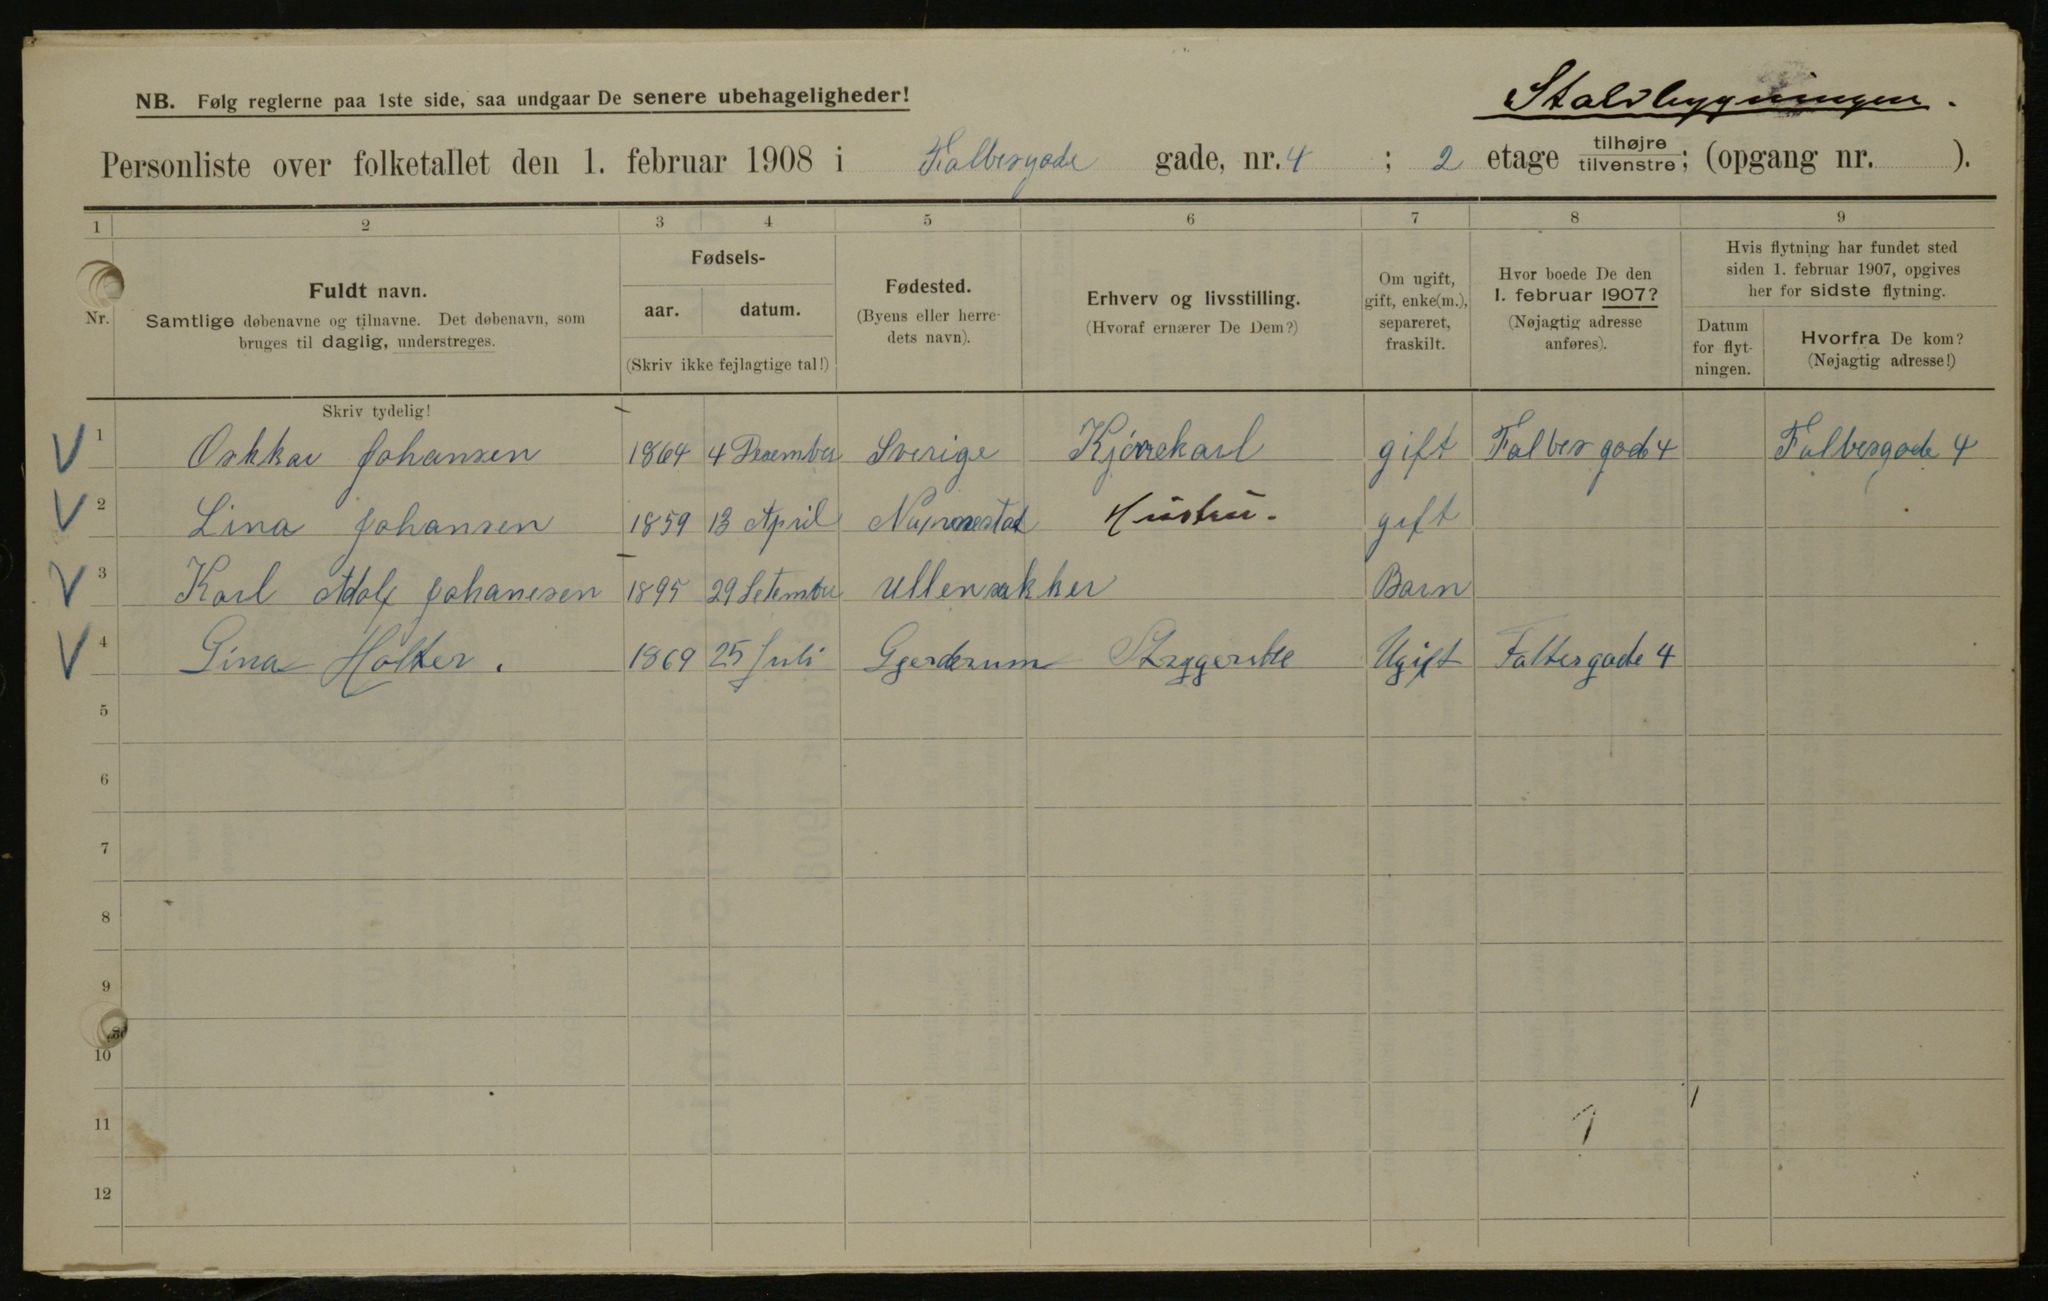 Staldbygningen.
NB. Følg reglerne paa 1ste side, saa undgaar De senere ubehageligheder!
Personliste over folketallet den 1. februar 1908 i Falbesgade gade, nr. 4 ; 2 etage tilhøjre tilvenstre; (opgang nr. ).
1 2 3 4 5 6 7 8 9
Nr.
Fuldt navn.
Samtlige døbenavne og tilnavne. Det døbenavn, som
bruges til daglig, understreges.
Skriv tydelig!
Fødsels-
aar. datum.
(Skriv ikke fejlagtige tal!)
Fødested.
(Byens eller herre-
dets navn).
Erhverv og livsstilling.
(Hvoraf ernærer De Dem?)
Om ugift,
gift, enke(m.),
separeret,
fraskilt.
Hvor boede De den
1. februar 1907?
(Nøjagtig adresse
anføres).
Hvis flytning har fundet sted
siden 1. februar 1907, opgives
her for sidste flytning.
Datum
for flyt-
ningen.
Hvorfra De kom?
(Nøjagtig adresse!)
1 Oskkar Johansen 1864 4 Desember Sverige Kjørekarl gift Falbes gade 4 Falbesgade 4
2 Lina Johansen 1859 13 April Nannestad Hustru. gift
3 Karl Adolf Johanesen 1895 29 Setember Ullensakker Barn
4 Gina Holter. 1869 25 Juli Gjerderum Ugift Falbesgade 4
5
6
7
8
9
10
11
12